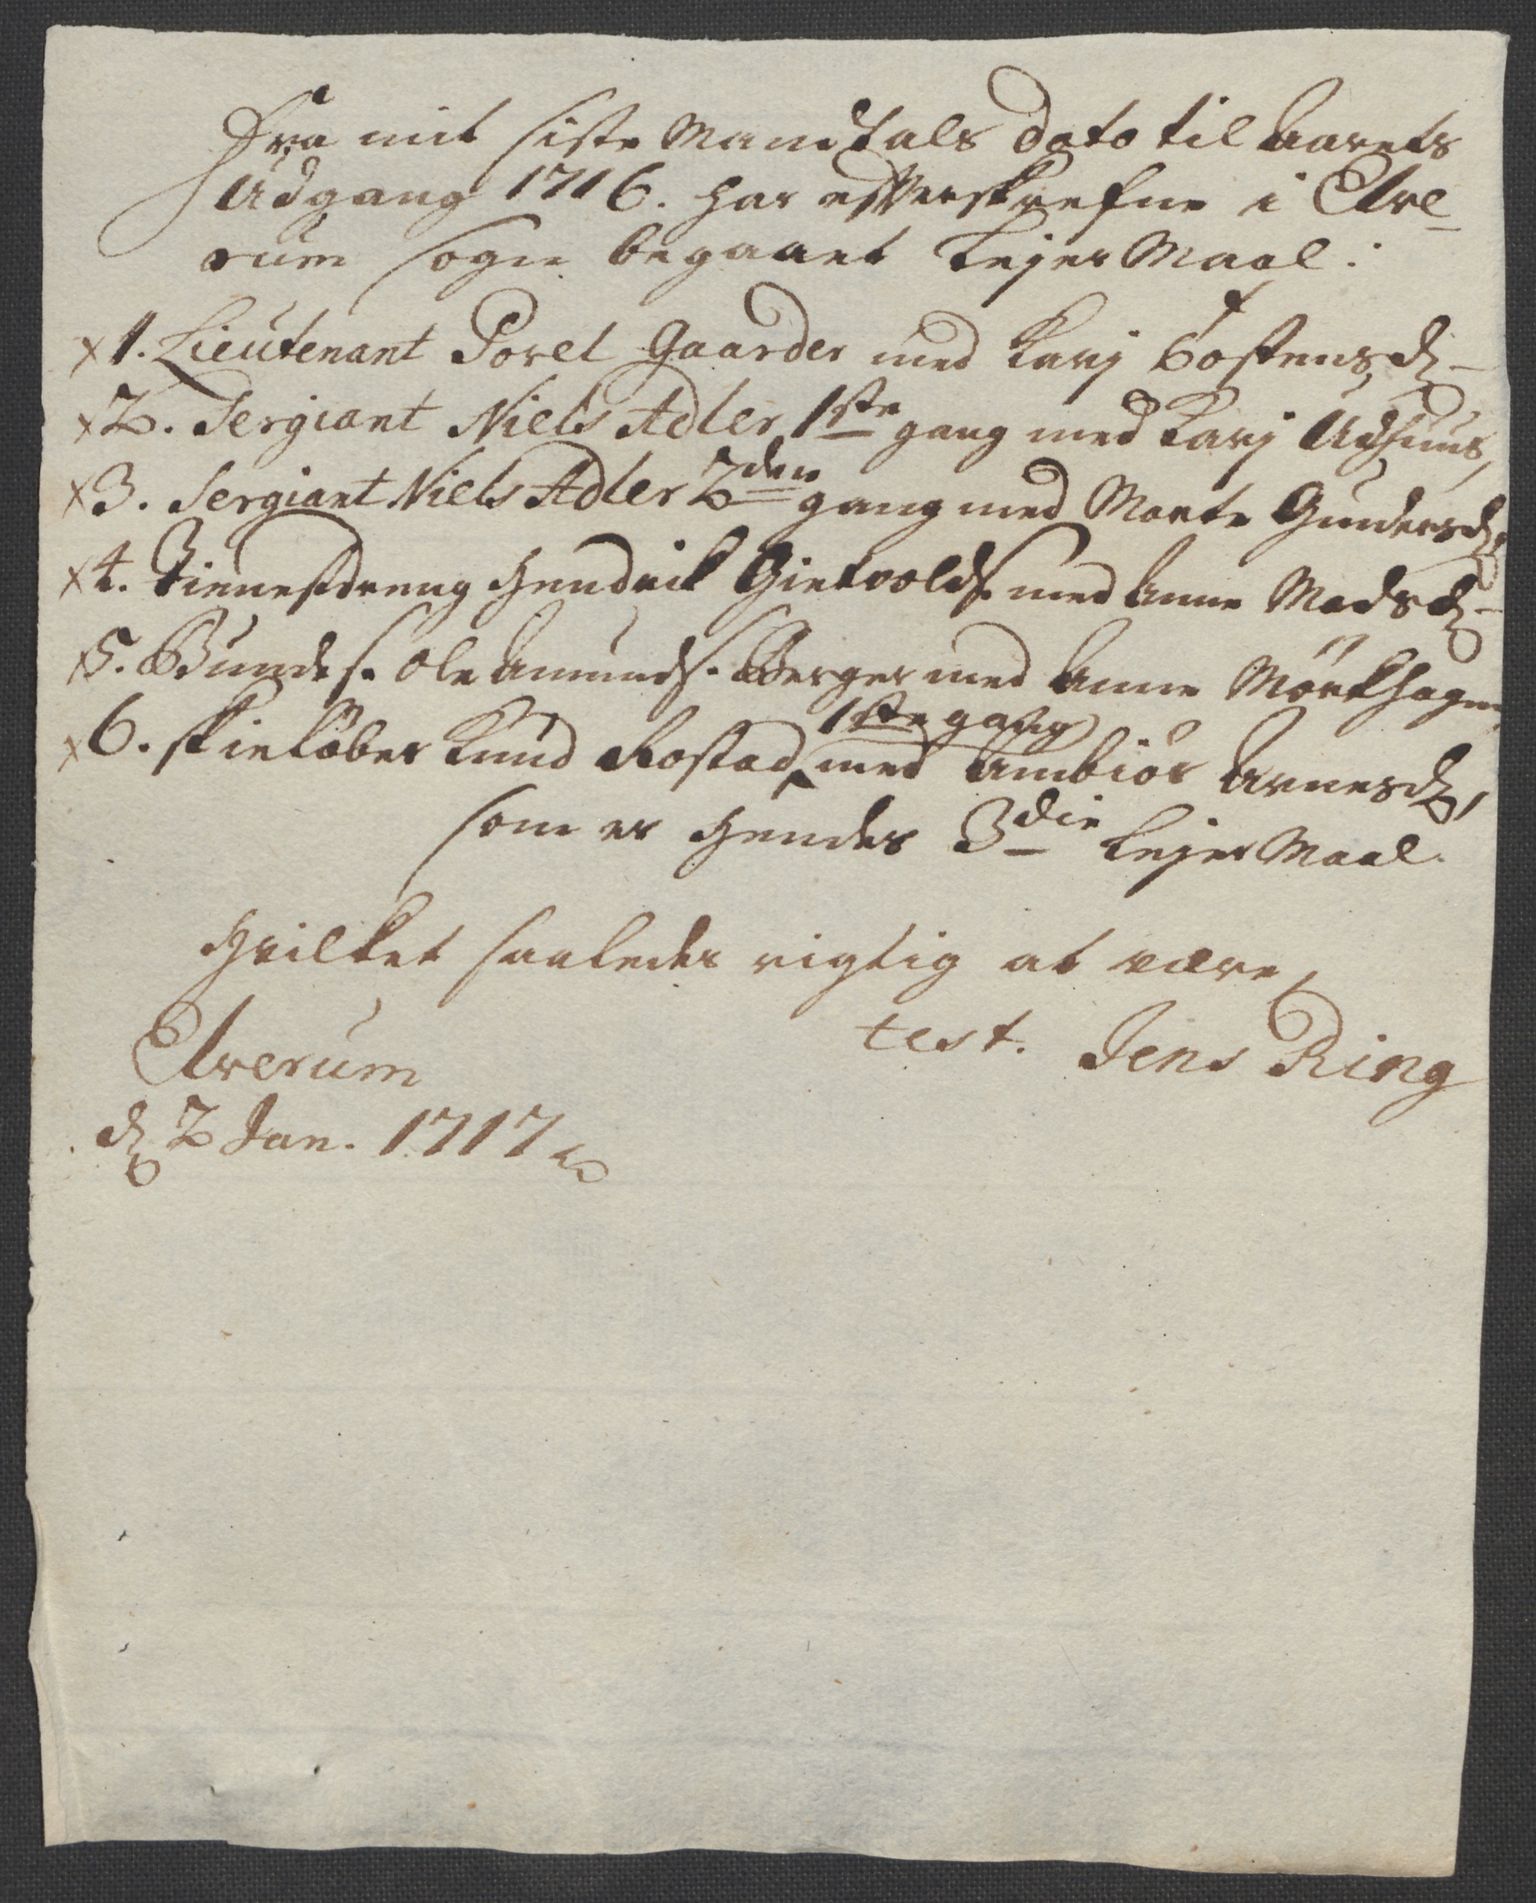 Fra mit siste Mandtals dato til Aarets
Udgang 1716. har efterskrefne i Elve-
rum sogn begaaet Lejermaal:
x 1. Lieutenant Povel Gaarder med Karj Tostensd. -
x 2. Sergiant Niels Adler 1ste gang med Karj Udhuus,
x 3. Sergiant Niels Adler 2den gang med Marte Gundersd.
x 4. Tienestdreng Hendrik Gietvolds. med Anne Madsd. -
x 5. Bundes. Ole Amunds. Berger med Anne Mörkhagen,
1ste gang
x 6. Skielöber Knud Rostad, med Ambiör Arnesd.,
som er Hendes 3die Lejer Maal.
Hvilket saaledes rigtig at være,
test. Jens Ring
Elverum
d. 2 Jan. 1717